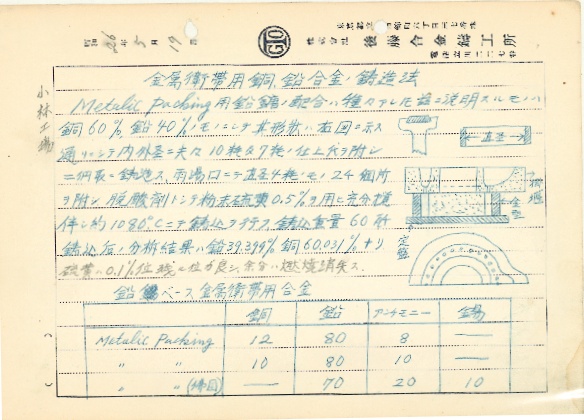 昭和 26年 5月 19日
東京都立川市錦町六丁目三七番地
株式会社 後藤合金鋳工所
電話立川二二七番
小林工場
金属衛帯用銅、鉛合金ノ鋳造法
Metalic Packing 用鉛鏡ノ配合ハ種々アレ共 茲ニ説明スルモノハ
銅60%, 鉛40%ノモノニシテ其形状ハ右図ニ示ス
通リニシテ内外径ニ夫々10粍及7粍ノ仕上代ヲ附シ
ニ鋳造ス 湯口ニテ直径4粍ノモノ24個所
ヲ附シ 脱酸剤トシテ粉末硫黄0.5%ヲ用ヒ充分攪
伴し約1080°Cニテ鋳込ヲ行フ 鋳込重量60瓩
鋳込后ノ分析結果ハ鉛39.399% 銅60.031%ナリ
硫黄ハ0.1%位残ル位ガ良シ、余分ハ燃焼消失ス
直径
定盤
鉛ベース金属衛帯用合金
銅 鉛 アンチモニー 錫
Metalic Packing 12 80 8 —
〃 〃 10 80 10 —
〃 〃 — 70 20 10